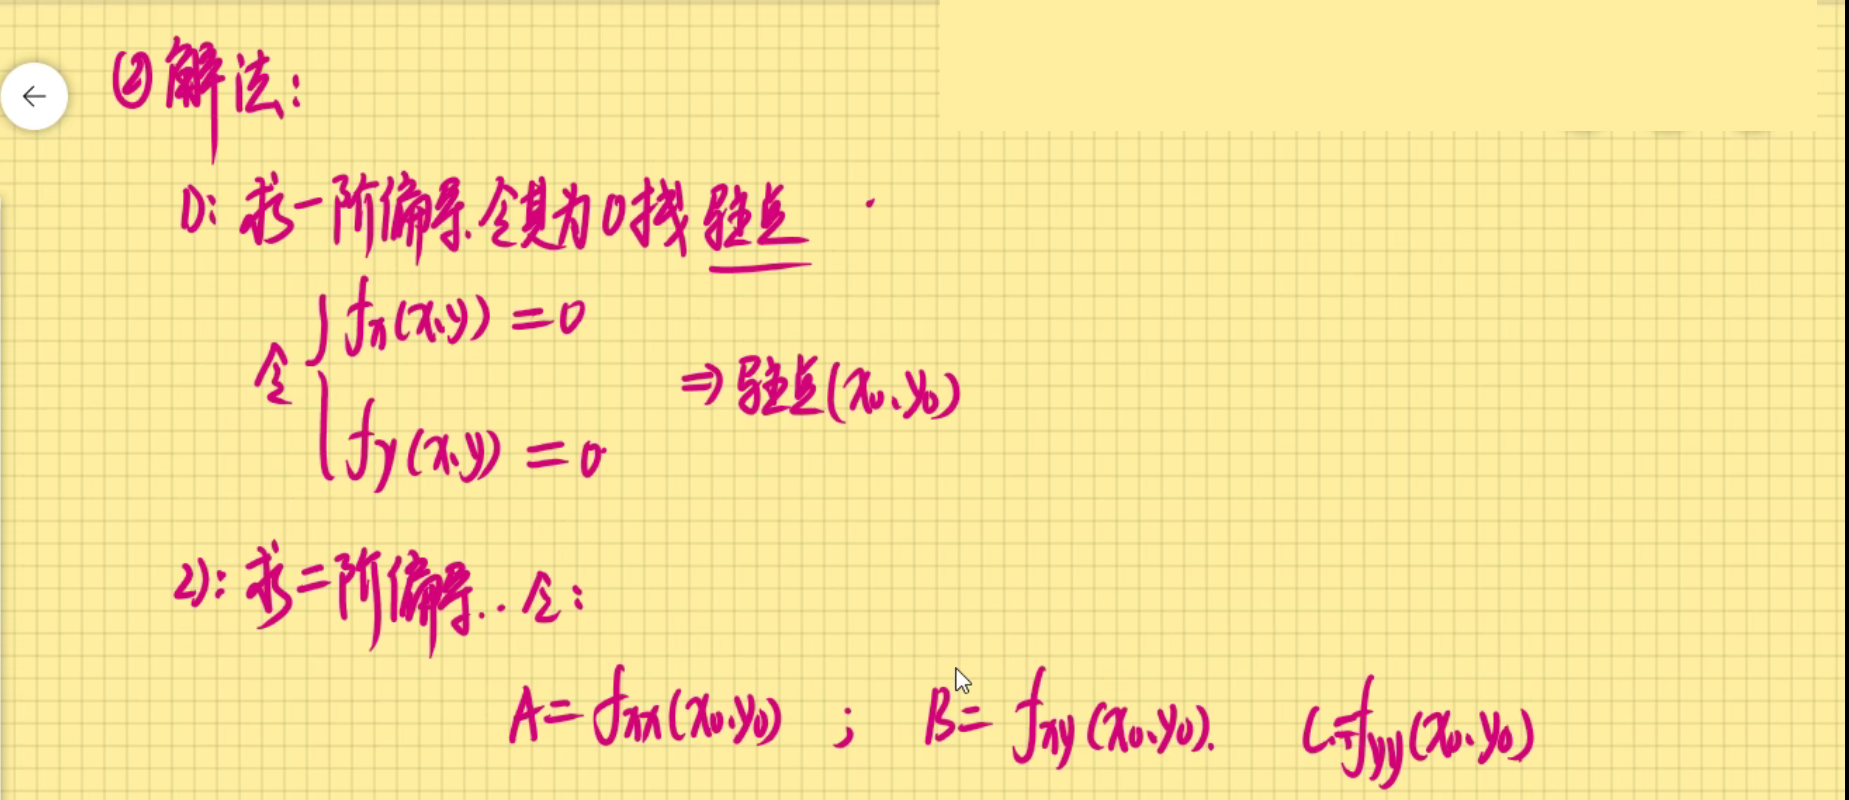 ② 解法:
1): 求一阶偏导.令其为0找驻点
令 { fx(x,y) = 0
⇒ 驻点(x0,y0)
fy(x,y) = 0
2): 求二阶偏导.. 令:
A = fxx(x0,y0) ; B = fxy(x0,y0). C = fyy(x0,y0)